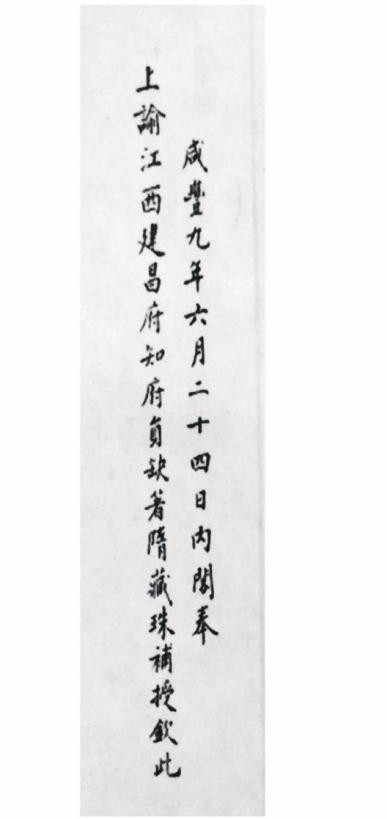 咸豐九年六月二十四日內閣奉
上諭江西建昌府知府員缺著隋藏珠補授欽此